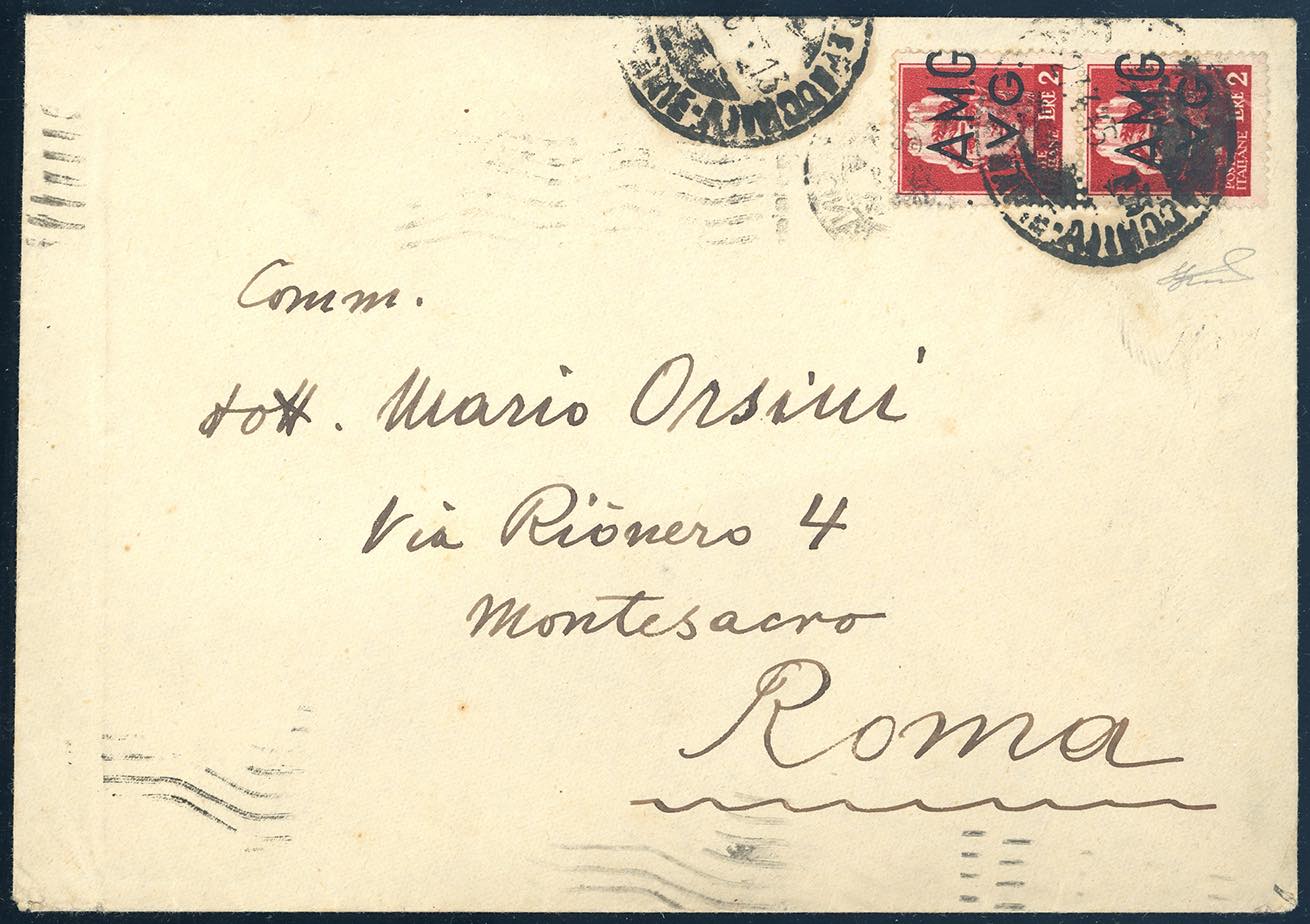 A.M.G. V.G.
LIRE 2
POSTE ITALIANE
A.M.G. V.G.
LIRE 2
ITALIANE
Comm.
dott. Mario Orsini
Via Rionero 4
Montesacro
Roma